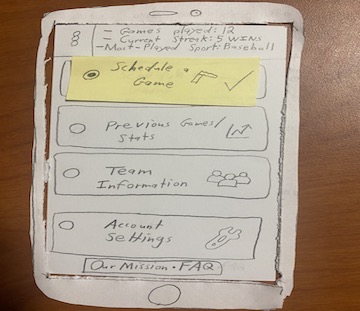 - Games played: 12
- Current Streak: 5 WINS
- Most-Played Sport: Baseball
Schedule a
Game
Previous Games/
Stats
Team
Information
Account
Settings
Our Mission • FAQ